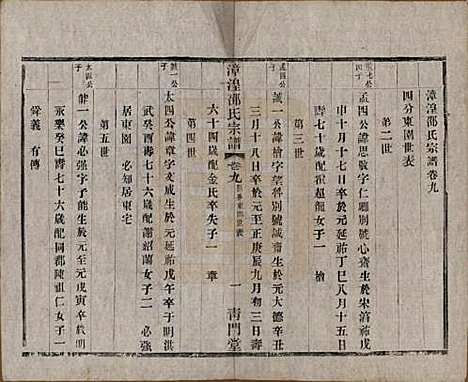 漳湟邵氏宗譜卷九
四分東園世表
第二世
孟四公諱思敬字仁卿別號心齋生於宋淳祐戊
申十月十七日戌時卒於元延祐丁巳八月十五日
壽七十歲配
女子一 檜
第三世
誠一公諱檜字望
別號誠齋生於元大德辛丑
三月十八日卒於元至正庚辰九月初三日壽
漳湟邵氏宗譜
卷九
一
青門堂
六十四歲配金氏卒失子一 章
第四世
太四公諱章字文成生於元延祐戊午卒于明洪
武癸酉壽七十六歲配謝紹蘭女子二 必強
居東園 必知居東宅
第五世
健一公諱必強字子能生於至元戊寅卒於明
永樂癸巳壽七十六歲配同郡陳祖仁女子一
舜義 有傳